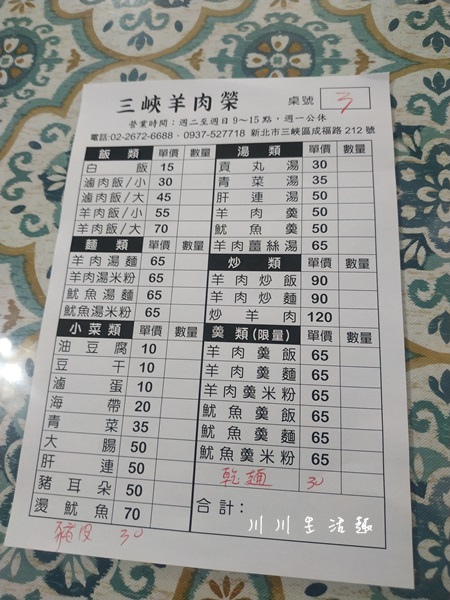 三峽羊肉榮
桌號 3
營業時間：週二至週日9～15點，週一公休
電話:02-2672-6688、0937-527718 新北市三峽區成福路212號
飯類 單價 數量
白飯 15
滷肉飯/小 30
滷肉飯/大 45
羊肉飯/小 55
羊肉飯/大 70
麵類 單價 數量
羊肉湯麵 65
羊肉湯米粉 65
魷魚湯麵 65
魷魚湯米粉 65
小菜類 單價 數量
油豆腐 10
豆干 10
滷蛋 10
海帶 20
青菜 35
大腸 50
肝連 50
豬耳朵 50
燙魷魚 70
豬皮 30
湯類 單價 數量
貢丸湯 30
青菜湯 35
肝連湯 50
羊肉羹 50
魷魚羹 50
羊肉薑絲湯 65
炒類 單價 數量
羊肉炒飯 90
羊肉炒麵 90
炒羊肉 120
羹類(限量) 單價 數量
羊肉羹飯 65
羊肉羹麵 65
羊肉羹米粉 65
魷魚羹飯 65
魷魚羹麵 65
魷魚羹米粉 65
乾麵 30
合計：
川川生活趣